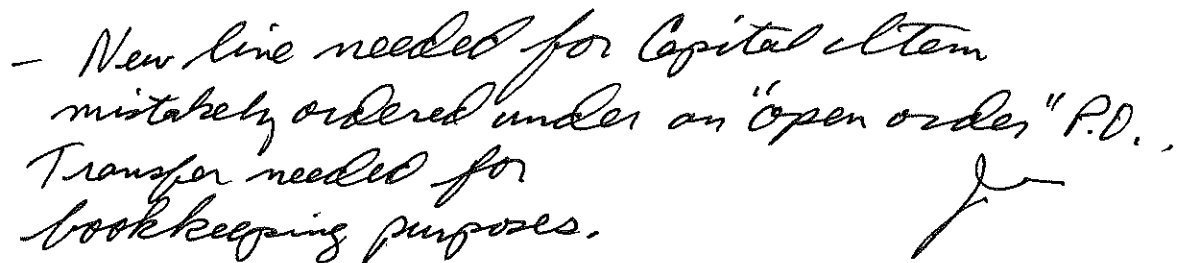 - New line needed for Capital Item
mistakely ordered under an "open order" P.O..
Transfer needed for
bookkeeping purposes.